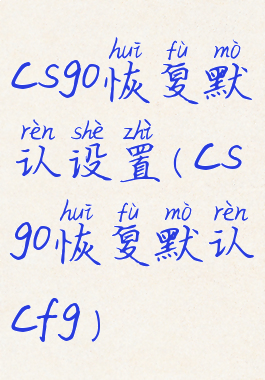 huī fù mò
csgo恢复默
rèn shè zhì
认设置(cs
huī fù mò rèn
go恢复默认
cfg)